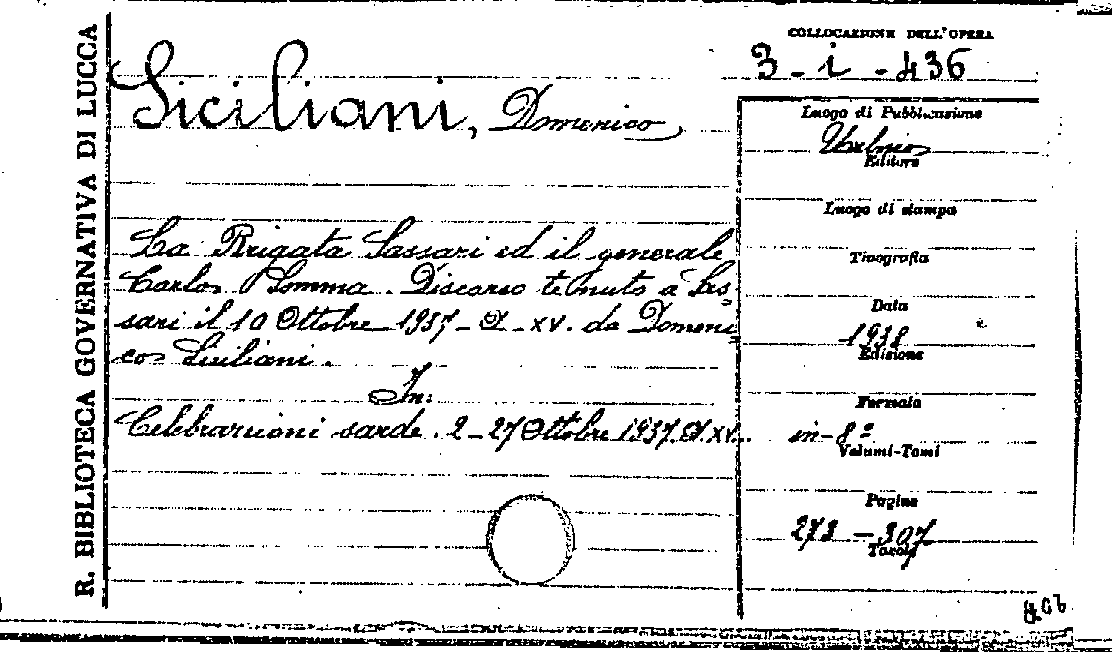 R. BIBLIOTECA GOVERNATIVA DI LUCCA
COLLOCAZIONE DELL'OPERA
3 - i - 436
Siciliani, Domenico
La Brigata Sassari ed il generale
Carlo Somma. Discorso tenuto a Sas=
sari il 10 Ottobre 1937 - XV. da Domeni=
co Siciliani.
In:
Celebrazioni sarde. 2-27 Ottobre 1937. XV.
Luogo di Pubblicazione
Urbino
Editore
Luogo di stampa
Tipografia
Data
1938
Edizione
Formato
in-8º
Volumi-Tomi
Pagine
273 - 307
Tavole